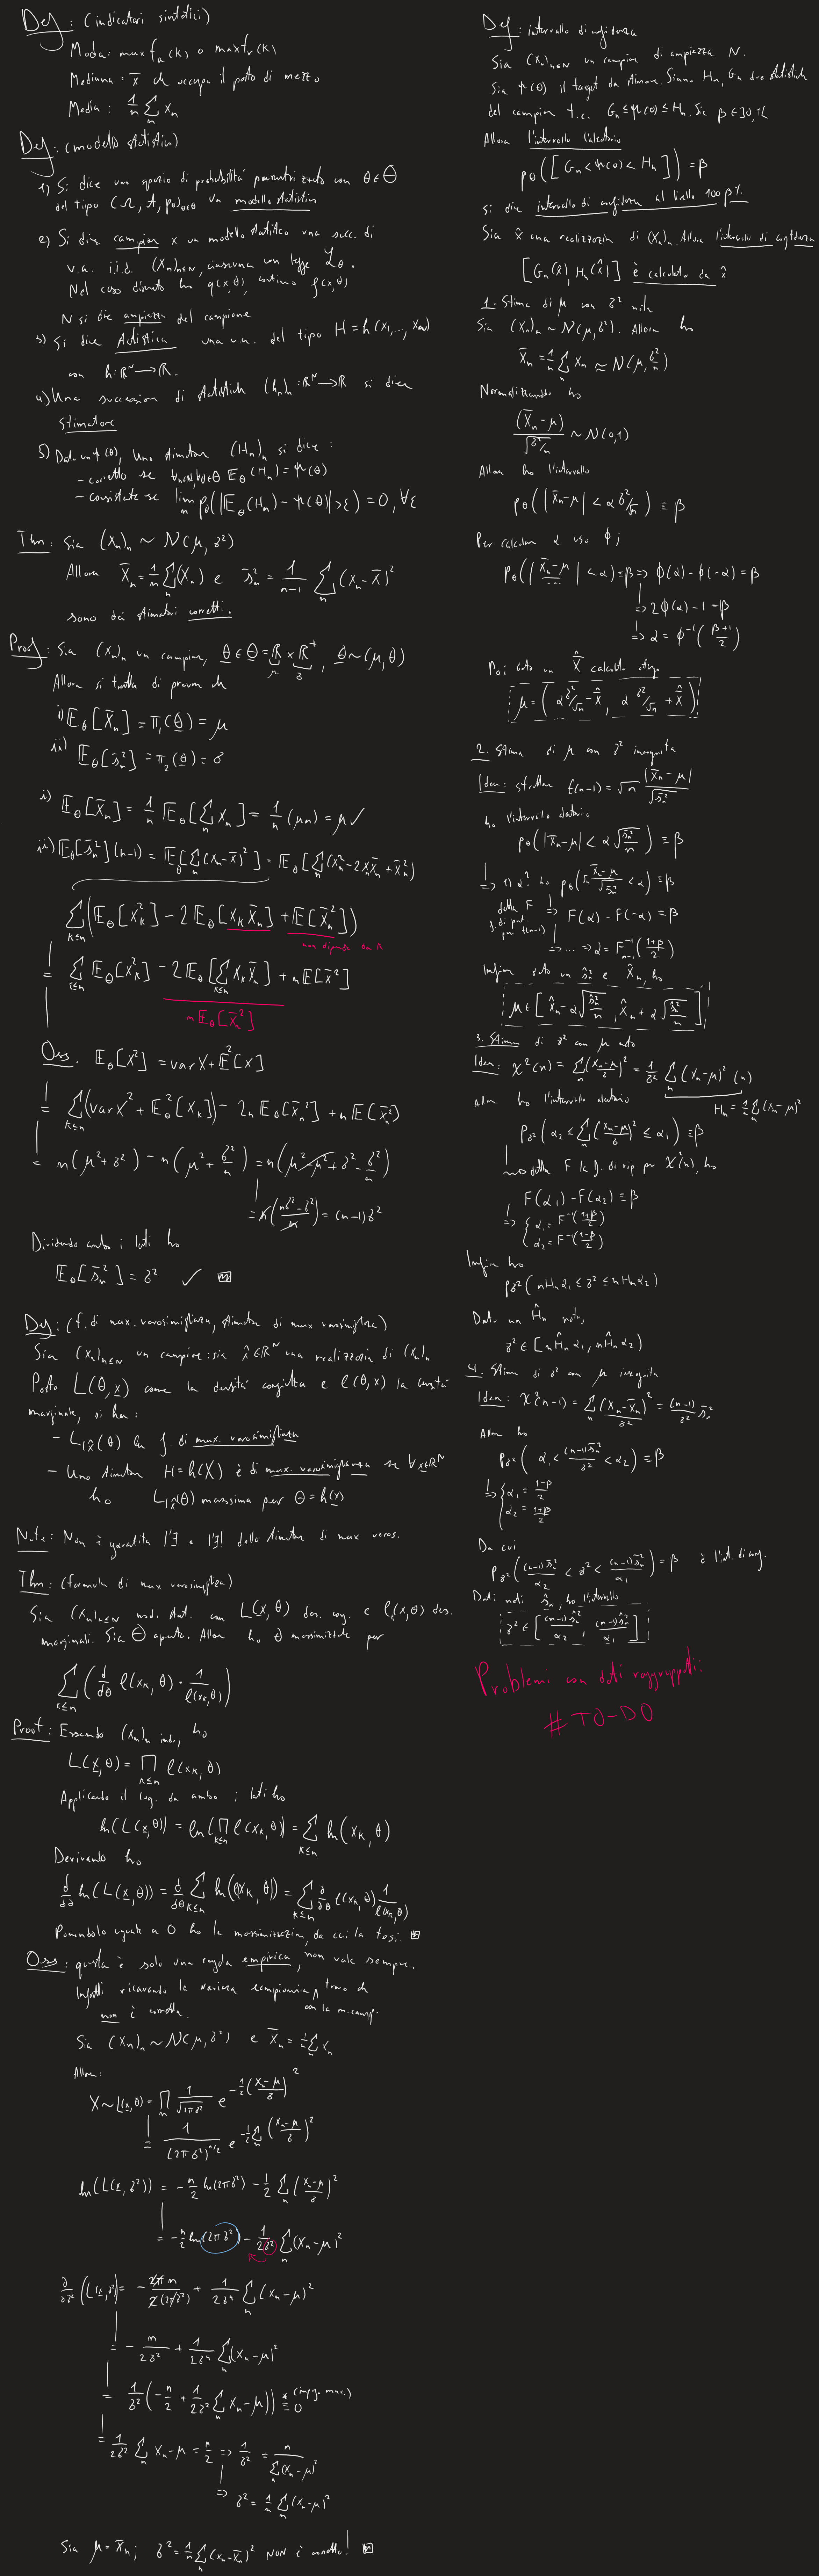 Def: (indicatori sintetici)
Moda: max fₐ(k) o max fᵣ(k)
Mediana: x̄ che occupa il posto di mezzo
Media: 1/n Σₙ xₙ
Def: (modello statistico)
1) Si dice uno spazio di probabilità parametrizzato con θ∈Θ
del tipo (Ω, A, p_θ)_θ∈Θ un modello statistico
2) Si dice campione x un modello statistico una succ. di
v.a. i.i.d. (Xₙ)ₙ≤N, ciascuna con legge L_θ.
Nel caso discreto ho q(x,θ), continuo f(x,θ)
N si dice ampiezza del campione
3) Si dice statistica una v.a. del tipo H = h(X₁,..., X_N)
con h: ℝᴺ → ℝ.
4) Una successione di statistiche (hₙ)ₙ: ℝᴺ → ℝ si dice
stimatore
5) Dato un ψ(θ), uno stimatore (Hₙ)ₙ si dice:
- corretto se ∀n∈ℕ, ∀θ∈Θ 𝔼_θ(Hₙ) = ψ(θ)
- consistente se limₙ p_θ(|𝔼_θ(Hₙ) - ψ(θ)| > ε) = 0, ∀ε
Thm: Sia (Xₙ)ₙ ~ N(μ, σ²)
Allora X̄ₙ = 1/n Σₙ(Xₙ) e s̄ₙ² = 1/(n-1) Σₙ (Xₙ - X̄)²
sono dei stimatori corretti.
Proof: Sia (Xₙ)ₙ un campione, θ ∈ Θ = ℝ × ℝ⁺, θ ~ (μ, θ)
Allora si tratta di provare che
i) 𝔼_θ[X̄ₙ] = π₁(θ) = μ
ii) 𝔼_θ[s̄ₙ²] = π₂(θ) = σ
i) 𝔼_θ[X̄ₙ] = 1/n 𝔼_θ[Σₙ Xₙ] = 1/n (μn) = μ ✓
ii) 𝔼_θ[s̄ₙ²](n-1) = 𝔼_θ[Σₙ (Xₙ - X̄)²] = 𝔼_θ[Σₙ (Xₙ² - 2XₙX̄ₙ + X̄ₙ²)]
Σ_k≤n (𝔼_θ[X_k²] - 2𝔼_θ[X_k X̄ₙ] + 𝔼[X̄ₙ²])
non dipende da k
= Σ_k≤n 𝔼_θ[X_k²] - 2𝔼_θ[Σ_k≤n X_k X̄ₙ] + n𝔼[X̄²]
n𝔼_θ[X̄²]
Oss. 𝔼_θ[X²] = var X + 𝔼²[X]
= Σ_k≤n (var X² + 𝔼_θ²[X_k]) - 2n𝔼_θ[X̄ₙ²] + n𝔼[X̄ₙ²]
= n(μ² + σ²) - n(μ² + σ²/n) = n(μ² - μ² + σ² - σ²/n)
= n((nσ² - σ²)/n) = (n-1)σ²
Dividendo ambo i lati ho
𝔼_θ[s̄ₙ²] = σ² ✓
Def: (f. di max. verosimiglianza, stimatore di max verosimiglianza)
Sia (Xₙ)ₙ≤N un campione; sia x̂∈ℝᴺ una realizzazione di (Xₙ)ₙ
Posto L(θ, x) come la densità congiunta e ℓ(θ,x) la densità
marginale, si ha:
- L|x̂(θ) la f. di max. verosimiglianza
- Uno stimatore H = h(X) è di max. verosimiglianza se ∀x∈ℝᴺ
ho L|x̂(θ) massima per θ = h(x)
Nota: Non è garantita l'∃ o l'∃! dello stimatore di max veros.
Thm: (formula di max verosimiglianza)
Sia (Xₙ)ₙ≤N mod. stat. con L(x,θ) des. cog. e ℓₖ(x,θ) des.
marginali. Sia Θ aperto. Allora ho θ massimizzate per
Σ_k≤n (d/dθ ℓ(x_k, θ) · 1/ℓ(x_k,θ))
Proof: Essendo (Xₙ)ₙ ind., ho
L(x,θ) = Π_k≤n ℓ(x_k, θ)
Applicando il log. da ambo i lati ho
ln(L(x,θ)) = ln(Π_k≤n ℓ(x_k, θ)) = Σ_k≤n ln(x_k, θ)
Derivando ho
d/dθ ln(L(x,θ)) = d/dθ Σ_k≤n ln(ℓ(x_k, θ)) = Σ_k≤n ∂/∂θ ℓ(x_k,θ) 1/ℓ(x_k,θ)
Ponendolo uguale a 0 ho la massimizzazione, da cui la tesi.
Oss: questa è solo una regola empirica, non vale sempre.
Infatti ricavando la varianza campionaria, trovo che
con la m. camp.
non è corretta.
Sia (Xₙ)ₙ ~ N(μ, σ²) e X̄ₙ = 1/n Σₙ Xₙ
Allora:
X ~ L(x,θ) = Πₙ 1/√(2πσ²) e^(-1/2((Xₙ-μ)/σ)²)
= 1/(2πσ²)^(n/2) e^(-1/2 Σₙ((Xₙ-μ)/σ)²)
ln(L(x, σ²)) = -n/2 ln(2πσ²) - 1/2 Σₙ ((Xₙ-μ)/σ)²
= -n/2 ln(2πσ²) - 1/(2σ²) Σₙ (Xₙ-μ)²
∂/∂σ² (L(x,σ²)) = -2πn/(2(2πσ²)) + 1/(2σ⁴) Σₙ (Xₙ-μ)²
= -n/(2σ²) + 1/(2σ⁴) Σₙ (Xₙ-μ)²
= 1/σ² (-n/2 + 1/(2σ²) Σₙ Xₙ-μ)) = 0 (imp. max.)
= 1/(2σ²) Σₙ Xₙ-μ = n/2 => 1/σ² = n/Σₙ(Xₙ-μ)²
=> σ² = 1/n Σₙ (Xₙ-μ)²
Sia μ = X̄ₙ; σ² = 1/n Σₙ (Xₙ-X̄ₙ)² NON è corretto!
Def: intervallo di confidenza
Sia (Xₙ)ₙ≤N un campione di ampiezza N.
Sia ψ(θ) il target da stimare. Siano Hₙ, Gₙ due statistiche
del campione t.c. Gₙ ≤ ψ(θ) ≤ Hₙ. Sia β ∈ ]0,1[
Allora l'intervallo aleatorio
p_θ([Gₙ < ψ(θ) < Hₙ]) = β
si dice intervallo di confidenza al livello 100β%.
Sia x̂ una realizzazione di (Xₙ)ₙ. Allora l'intervallo di confidenza
[Gₙ(x̂), Hₙ(x̂)] è calcolato da x̂
1. Stima di μ con σ² nota
Sia (Xₙ)ₙ ~ N(μ, σ²). Allora ho
X̄ₙ = 1/n Σₙ Xₙ ≈ N(μ, σ²/n)
Normalizzando ho
(X̄ₙ-μ)/√(σ²/n) ~ N(0,1)
Allora ho l'intervallo
p_θ(|X̄ₙ-μ| < α σ²/√n) = β
Per calcolare α uso ϕ;
p_θ(|X̄ₙ-μ / ...| < α) = β => ϕ(α) - ϕ(-α) = β
=> 2ϕ(α) - 1 = β
=> α = ϕ⁻¹((β+1)/2)
Poi dato un X̂ calcolato ottengo
μ = (α σ²/√n - X̄̂, α σ²/√n + X̄̂)
2. Stima di μ con σ² incognita
Idea: sfruttare t(n-1) = √n |X̄ₙ-μ|/√s̄ₙ²
ho l'intervallo aleatorio
p_θ(|X̄ₙ-μ| < α√(s̄ₙ²/n)) = β
=> 1) α? ho p_θ(√n (X̄ₙ-μ)/√s̄ₙ² < α) = β
detta F f. di part. per t(n-1) => F(α) - F(-α) = β
=> ... => α = F⁻¹ₙ₋₁((1+β)/2)
Infine dato un ŝₙ² e X̂ₙ, ho
μ ∈ [X̂ₙ - α√(ŝₙ²/n), X̂ₙ + α√(ŝₙ²/n)]
3. Stima di σ² con μ noto
Idea: χ²(n) = Σₙ((Xₙ-μ)/σ)² = 1/σ² Σₙ (Xₙ-μ)² (n)
Hₙ = 1/n Σₙ (xₙ-μ)²
Allora ho l'intervallo aleatorio
p_σ²(α₂ ≤ Σₙ((Xₙ-μ)/σ)² ≤ α₁) = β
detta F la f. di rip. per χ²(n), ho
F(α₁) - F(α₂) = β
=> { α₁ = F⁻¹((1+β)/2)
α₂ = F⁻¹((1-β)/2)
Infine ho
p_σ²(nHₙα₁ ≤ σ² ≤ nHₙα₂)
Dato un Ĥₙ noto,
σ² ∈ [nĤₙα₁, nĤₙα₂)
4. Stima di σ² con μ incognita
Idea: χ²(n-1) = Σₙ (Xₙ-X̄ₙ)²/σ² = (n-1)/σ² s̄ₙ²
Allora ho
p_σ²(α₁ < (n-1)s̄ₙ²/σ² < α₂) = β
=> { α₁ = (1-β)/2
α₂ = (1+β)/2
Da cui
p_σ²((n-1)s̄ₙ²/α₂ < σ² < (n-1)s̄ₙ²/α₁) = β è l'int. di conf.
Dati noti ŝₙ, ho l'intervallo
σ² ∈ [(n-1)ŝₙ²/α₂, (n-1)ŝₙ²/α₁]
Problemi con dati raggruppati:
# TO-DO